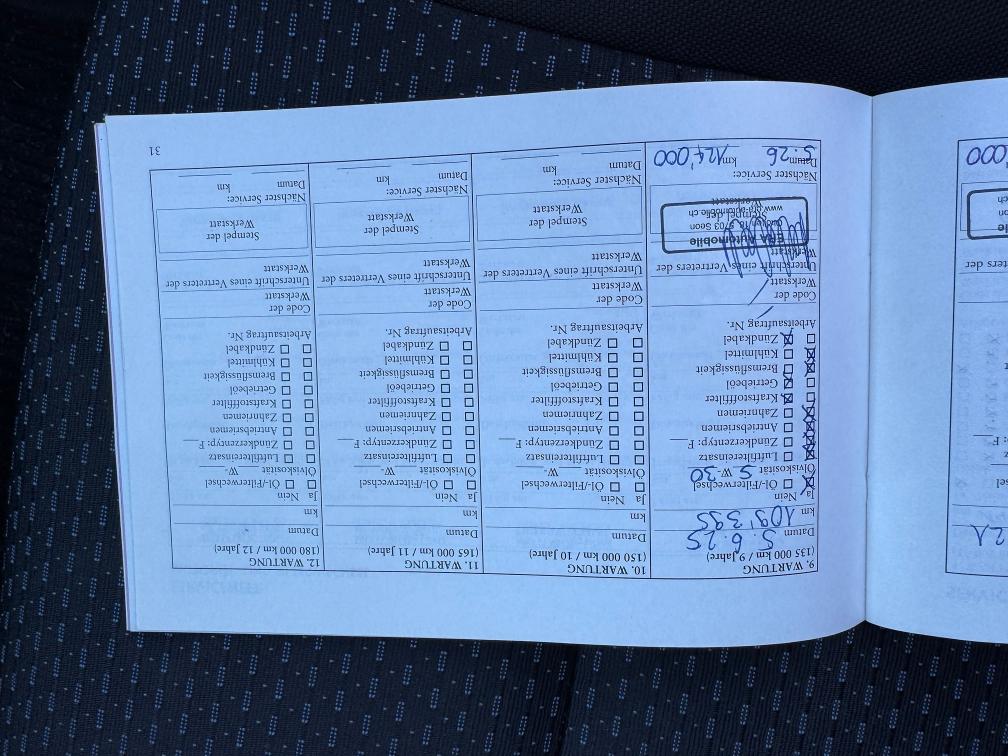 9. WARTUNG
(135 000 km / 9 Jahre)
Datum 5.6.25
km 109'395
Ja Nein
Öl-/Filterwechsel
Ölviskosität 5 W- 30
Luftfiltereinsatz
Zündkerzentyp: F
Antriebsriemen
Zahnriemen
Kraftstofffilter
Getriebeöl
Bremsflüssigkeit
Kühlmittel
Zündkabel
Arbeitsauftrag Nr.
Code der
Werkstatt
Unterschrift eines Vertreters der
Werkstatt
Stempel der
Werkstatt
Automobile
5703 Seon
Nächster Service:
Datum km
5.26 124'000
10. WARTUNG
(150 000 km / 10 Jahre)
Datum
km
Ja Nein
Öl-/Filterwechsel
Ölviskosität W-
Luftfiltereinsatz
Zündkerzentyp: F
Antriebsriemen
Zahnriemen
Kraftstofffilter
Getriebeöl
Bremsflüssigkeit
Kühlmittel
Zündkabel
Arbeitsauftrag Nr.
Code der
Werkstatt
Unterschrift eines Vertreters der
Werkstatt
Stempel der
Werkstatt
Nächster Service:
Datum km
11. WARTUNG
(165 000 km / 11 Jahre)
Datum
km
Ja Nein
Öl-/Filterwechsel
Ölviskosität W-
Luftfiltereinsatz
Zündkerzentyp: F
Antriebsriemen
Zahnriemen
Kraftstofffilter
Getriebeöl
Bremsflüssigkeit
Kühlmittel
Zündkabel
Arbeitsauftrag Nr.
Code der
Werkstatt
Unterschrift eines Vertreters der
Werkstatt
Stempel der
Werkstatt
Nächster Service:
Datum km
12. WARTUNG
(180 000 km / 12 Jahre)
Datum
km
Ja Nein
Öl-/Filterwechsel
Ölviskosität W-
Luftfiltereinsatz
Zündkerzentyp: F
Antriebsriemen
Zahnriemen
Kraftstofffilter
Getriebeöl
Bremsflüssigkeit
Kühlmittel
Zündkabel
Arbeitsauftrag Nr.
Code der
Werkstatt
Unterschrift eines Vertreters der
Werkstatt
Stempel der
Werkstatt
Nächster Service:
Datum km
31